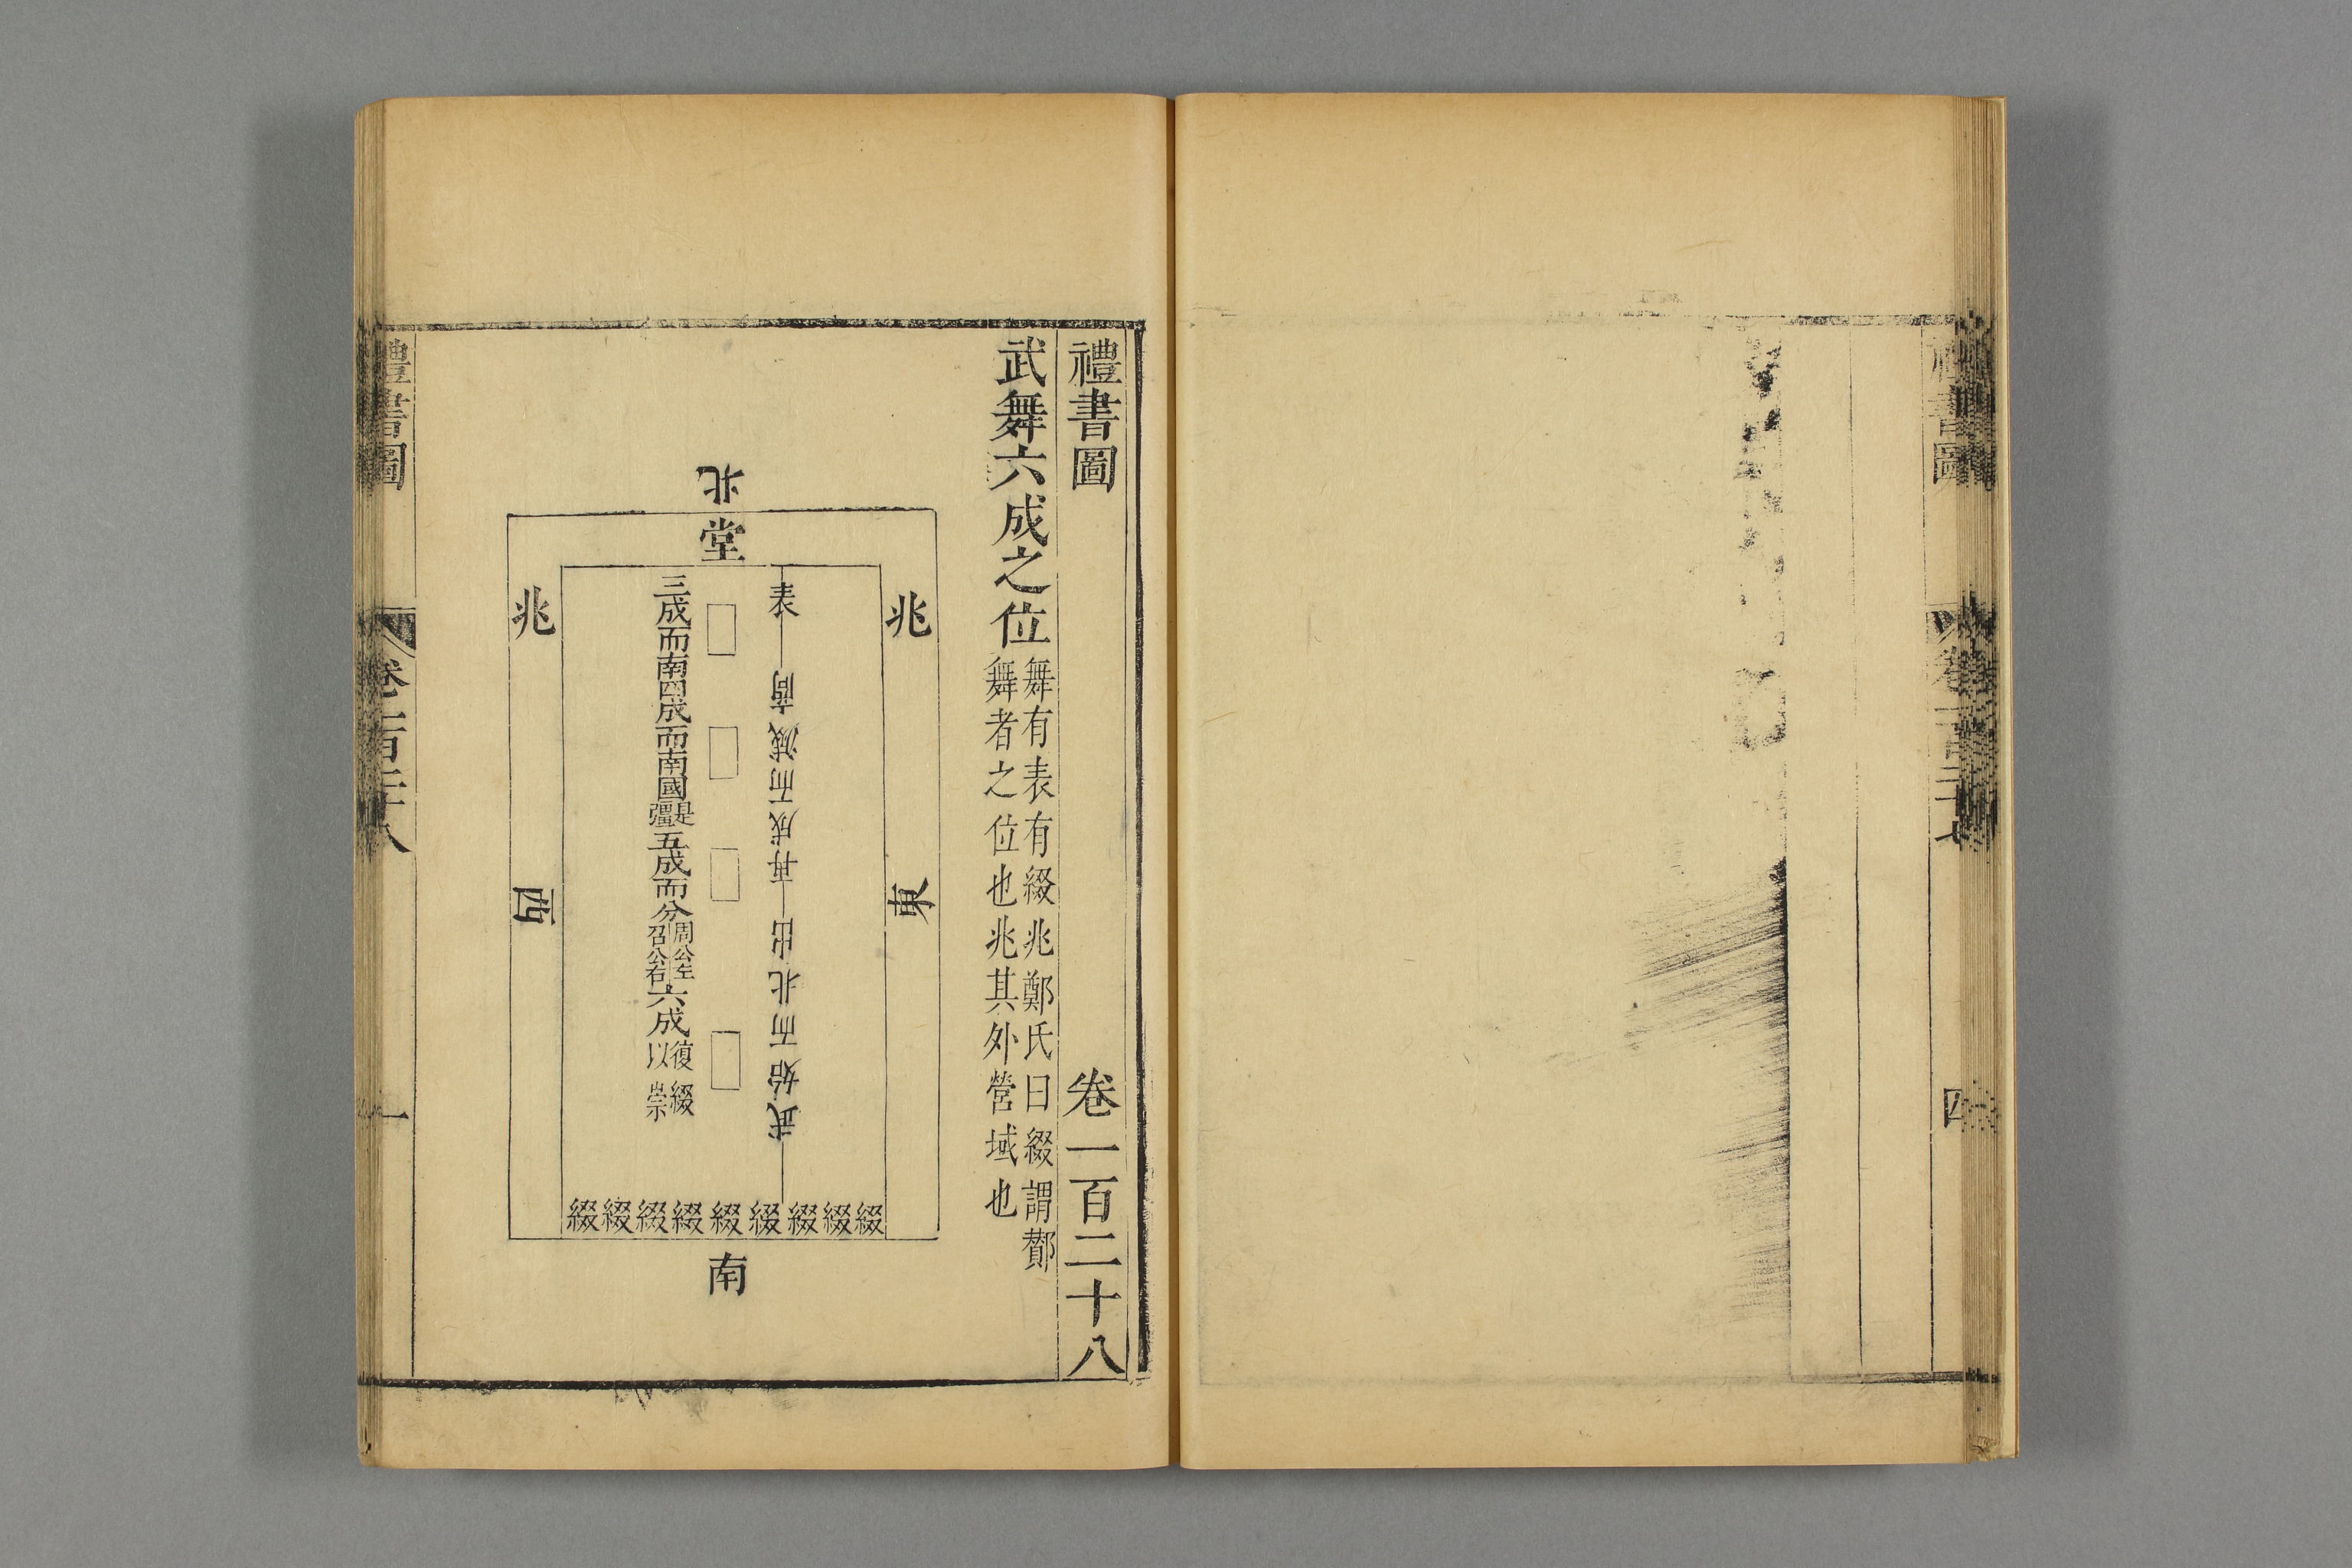 禮書圖 卷一百二十八
武舞六成之位
舞有表有綴兆鄭氏曰綴謂酇
舞者之位也兆其外營域也
北
堂
兆
東
表
武始而北出 再成而滅商
三成而南四成而南國是疆五成而分周公左召公右六成復綴以崇
兆
西
綴綴綴綴綴綴綴綴綴
南
禮書圖
卷一百二十八
一